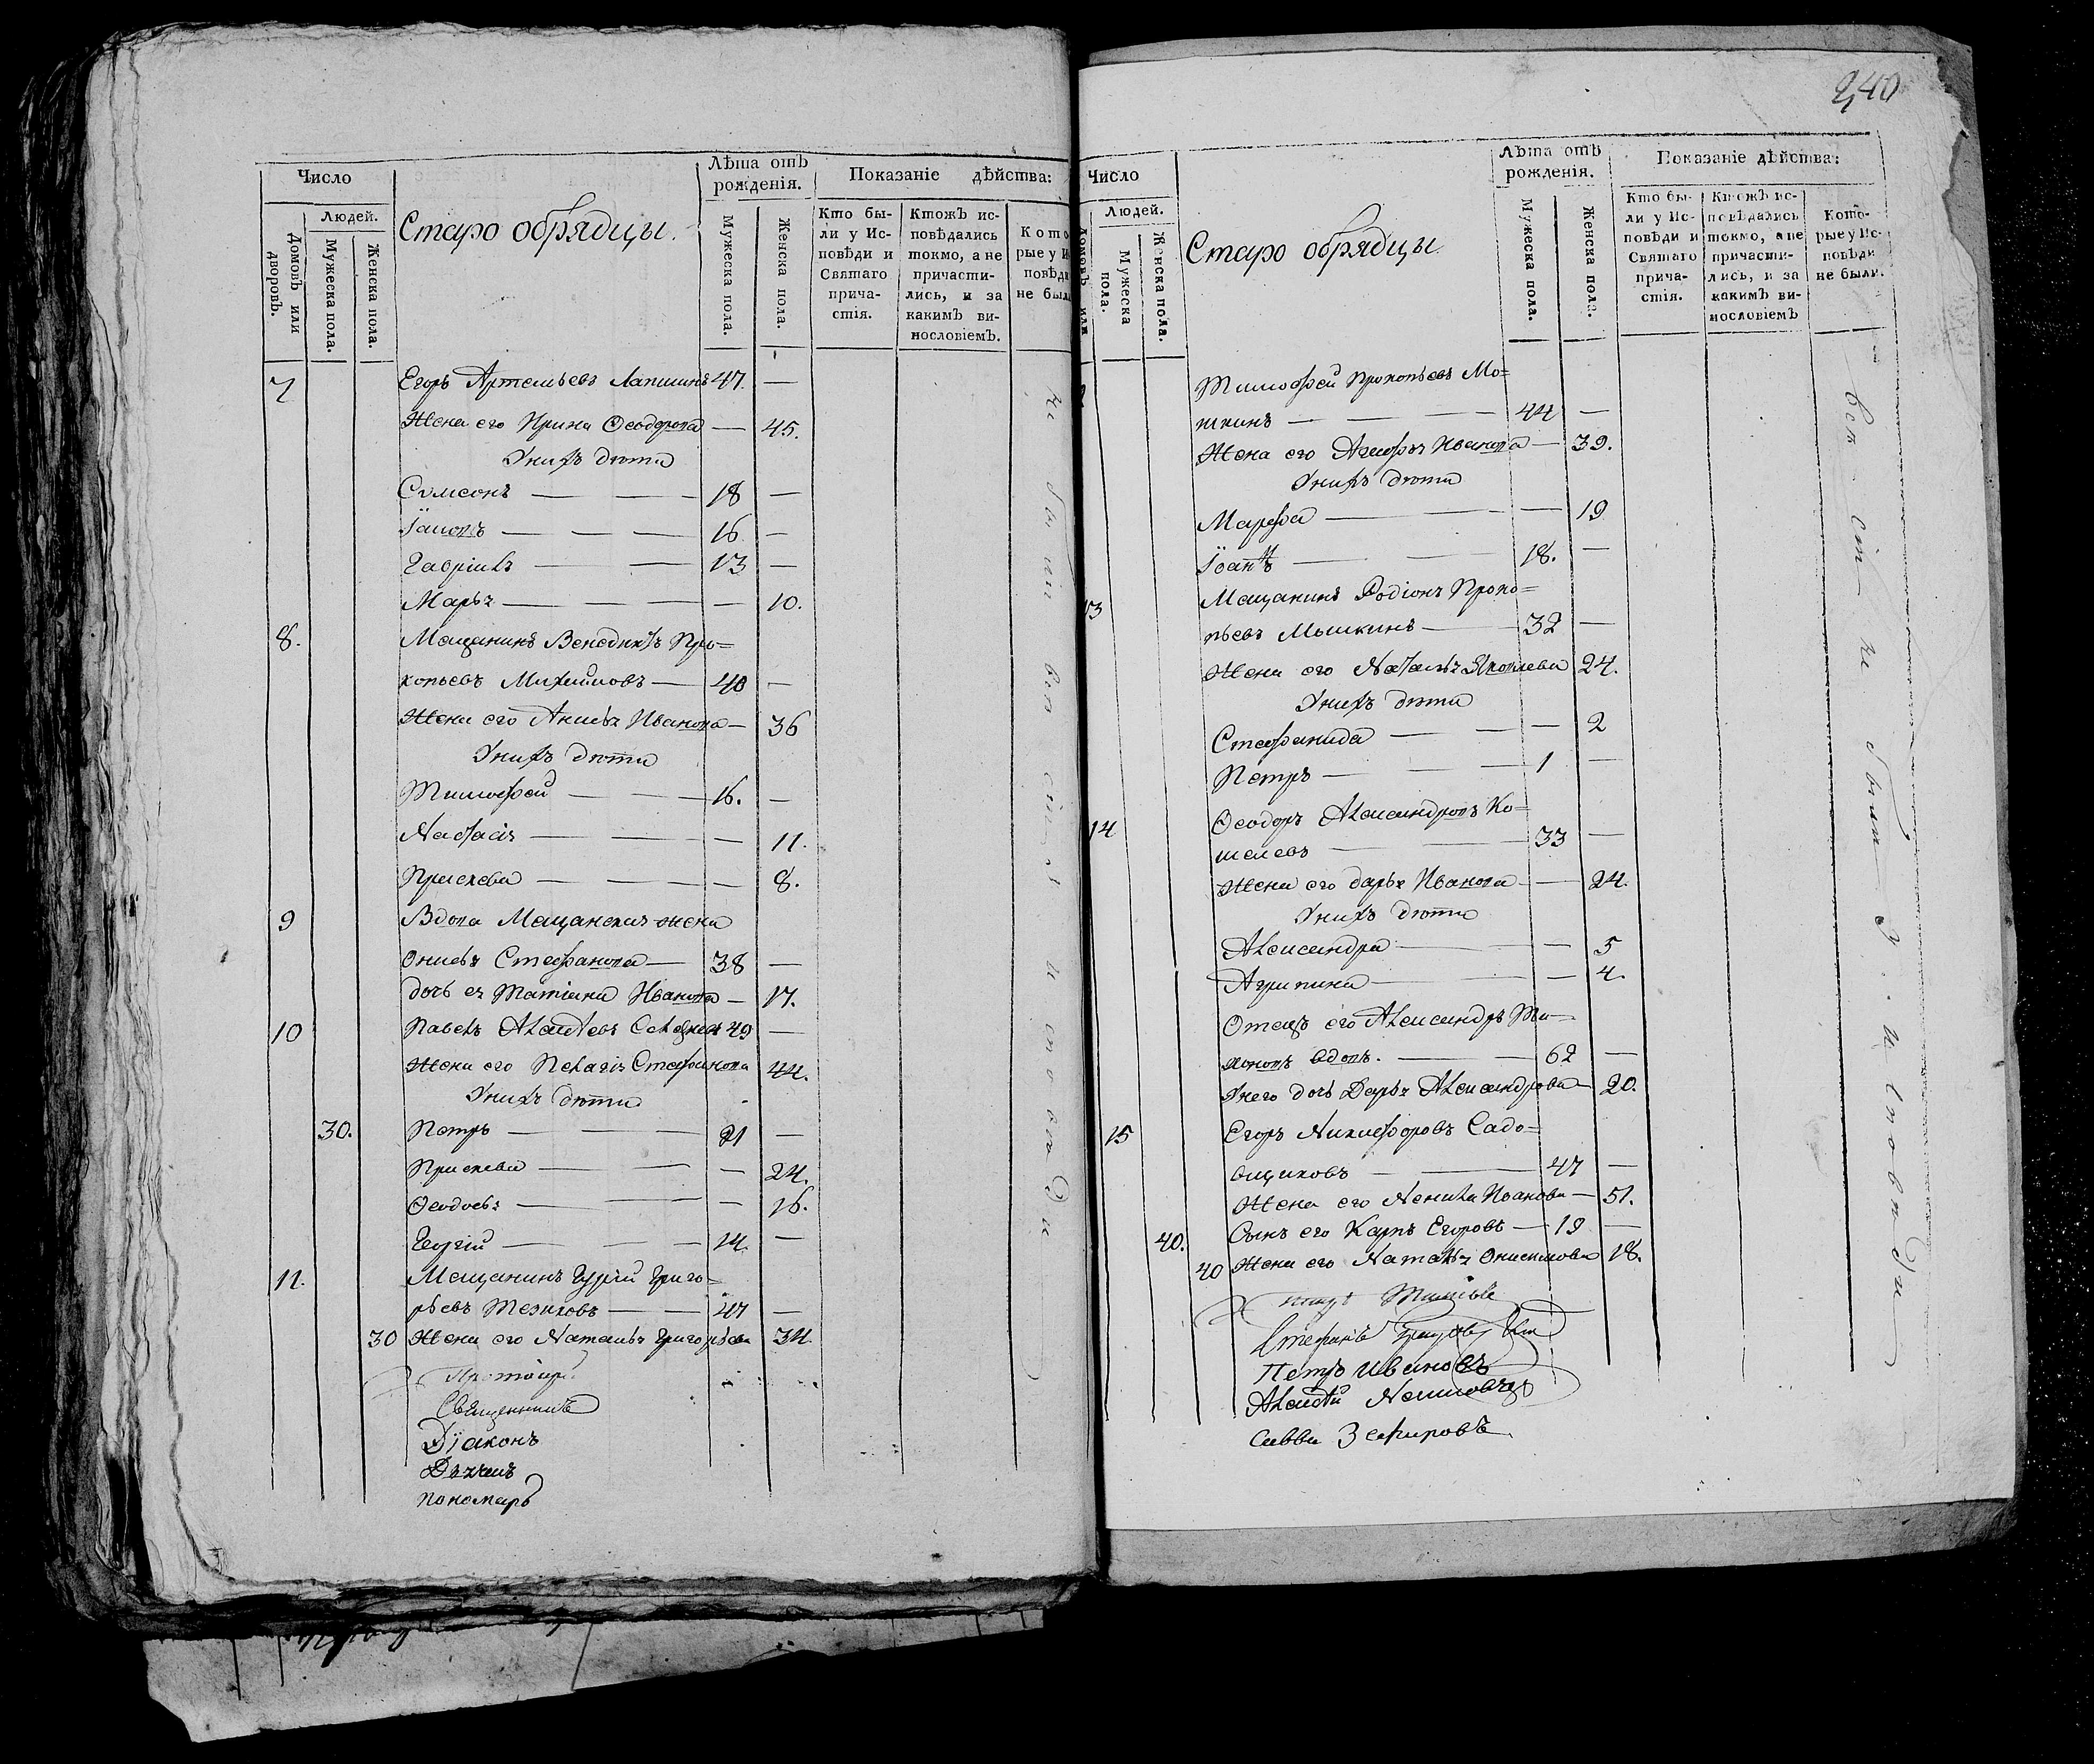 Число
Людей.
Домовъ или дворовъ.
Мужеска пола.
Женска пола.
Старо обрядцы.
Лѣта отъ рожденія.
Мужеска пола.
Женска пола.
Показаніе дѣйства:
Кто бы-
ли у Ис-
повѣди и
Святаго
прича-
стія.
Ктожъ ис-
повѣдались
токмо, а не
причасти-
лись, и за
какимъ ви-
нословіемъ.
Кото
рые у И
повѣди
не были
7 Егоръ Артемьевъ Лапшинъ 47. —
Жена его Ирина Ѳеодорова — 45.
У нихъ дѣти
Самсонъ — — — 18 —
Іаковъ — — — 16 —
Гавріилъ — — 13 —
Марья — — — — 10.
8. Мещанинъ Венедиктъ Про=
копьевъ — 40 —
Жена его Анисья Иванова — 36
У нихъ дѣти
Тимофей — — — 16. —
Настасія — — — 11.
Праскева — — — 8.
9 Вдова Мещанская жена
Онисья Стефанова — 38 —
дочь ея Татіана Иванова — 17.
10 Павелъ Алексѣевъ 49 —
Жена его Пелагія Стефанова 44.
У нихъ дѣти
30. Петръ — — — 21 —
Праскева — — — 24.
Ѳеодосья — — — 16.
Георгій — — — 14. —
11. Мещанинъ Гурій Григо=
рьевъ Тезиковъ — — 47 —
30 Жена его Наталья Григорьева 34.
Протоіер.
Священникъ
Діаконъ
Дьячекъ
пономарь
240
Число
Людей.
Домовъ или
Мужеска пола.
Женска пола.
Старо обрядцы
Лѣта отъ рожденія.
Мужеска пола.
Женска пола.
Показаніе дѣйства:
Кто бы-
ли у Ис-
повѣди и
Святаго
прича-
стія.
Ктожъ ис-
повѣдались
токмо, а не
причасти-
лись, и за
какимъ ви-
нословіемъ
Кото-
рые у Ис-
повѣди
не были.
Тимофей Прокопьевъ Мо=
шкинъ — — — 44 —
Жена его Агафья Иванова — 39.
У нихъ дѣти
Марфа — — — 19
Іоаннъ — — 18. —
13 Мещанинъ Родіонъ Проко=
пьевъ Мошкинъ — 32 —
Жена его Наталья Яковлева 24.
У нихъ дѣти
Стефанида — — — 2
Петръ — — — 1 —
14 Ѳеодоръ Александровъ Ко=
шелевъ — — 33 —
Жена его дарья Иванова — 24.
У нихъ дѣти
Александра — — 5
Агрипина — — 4.
Отецъ его Александръ Ти=
хоновъ вдовъ. — — 62 —
У него дочь Дарья Александрова — 20.
15 Егоръ Никифоровъ Садо=
вщиковъ — — 47 —
Жена его Ненила Иванова — 51.
40. Сынъ его Карпъ Егоровъ — 19 —
40 Жена его Наталья Онисимова 18.
Стефанъ
Петръ Ивановъ
Алексѣй
савва Зефировъ